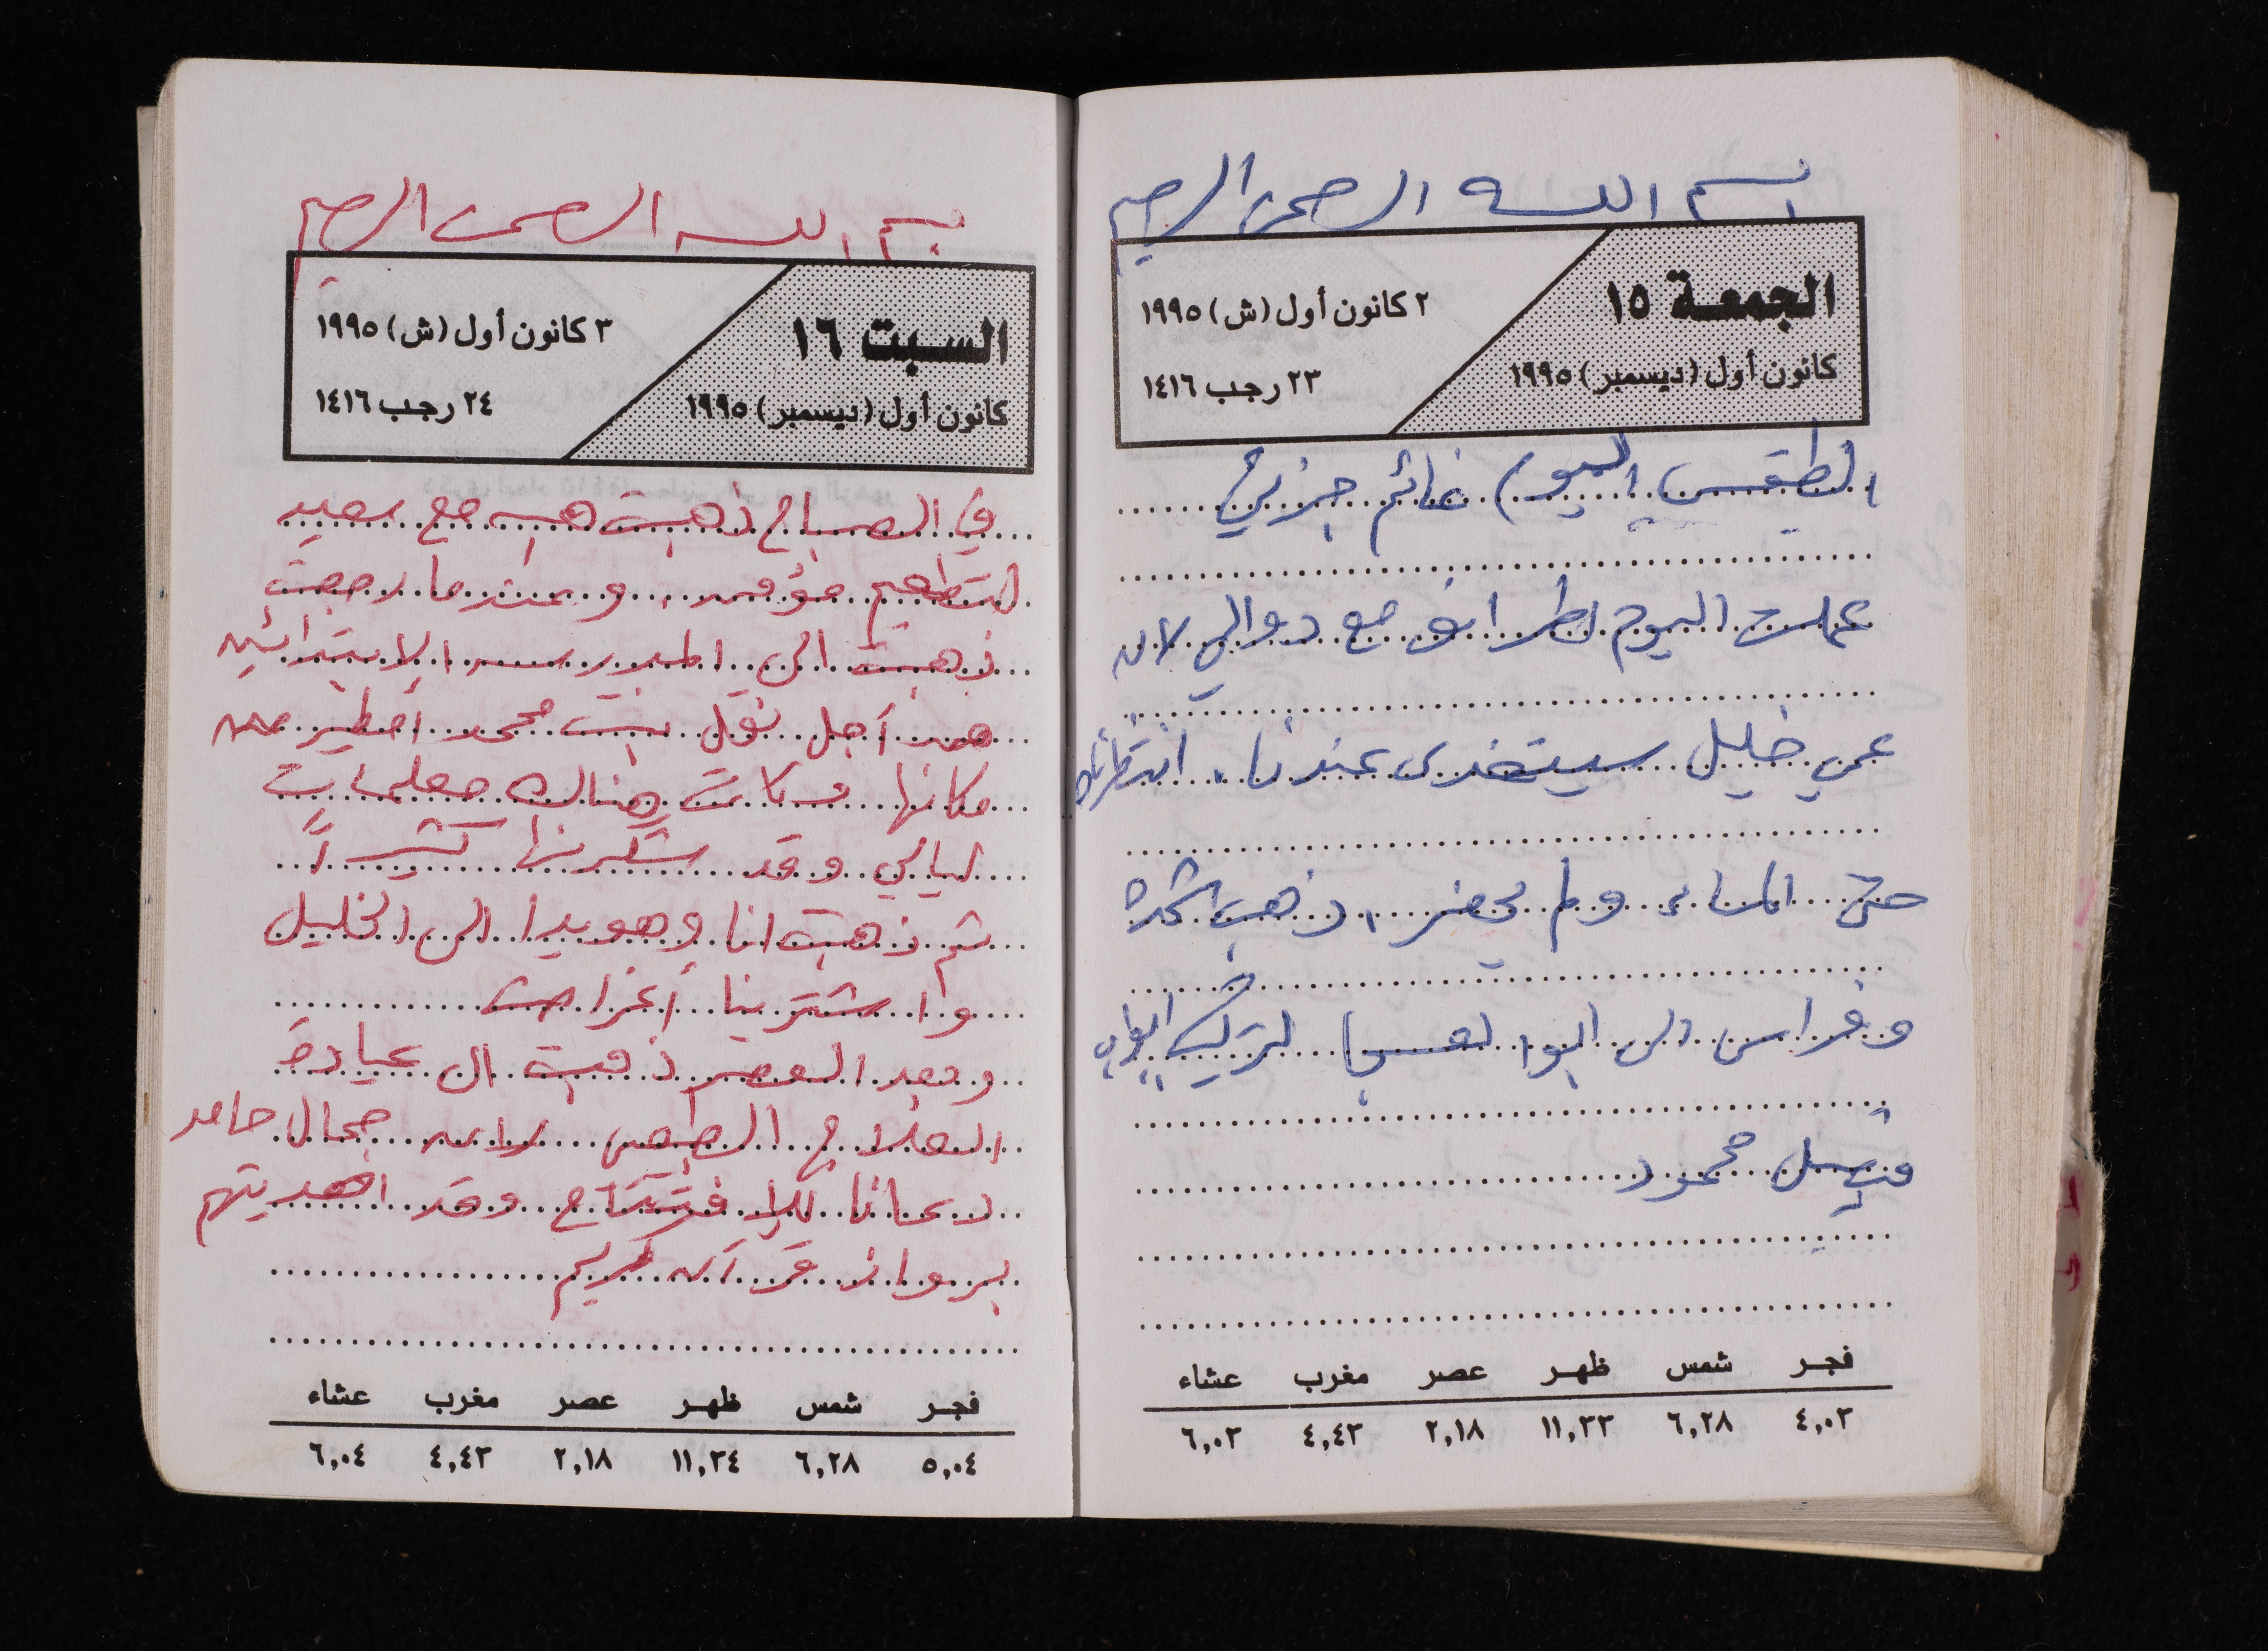 بسم الله الرحمن الرحيم
الجمعة ١٥
كانون أول (ديسمبر) ١٩٩٥
٢ كانون أول (ش) ١٩٩٥
٢٣ رجب ١٤١٦
الطقس اليوم غائم جزئي
عملت اليوم اطراف مع دوالي لان
عمي خليل سيتغدى عندنا. انتظرناه
حتى المساء ولم يحضر، ذهب شحده
وفراس الى ابو لتركيب ابواب
محمود
فجر شمس ظهر عصر مغرب عشاء
٤,٠٣ ٦,٢٨ ١١,٣٣ ٢,١٨ ٤,٤٣ ٦,٠٣
بسم الله الرحمن الرحيم
السبت ١٦
كانون أول (ديسمبر) ١٩٩٥
٣ كانون أول (ش) ١٩٩٥
٢٤ رجب ١٤١٦
في الصباح ذهبت هبه مع سعيد
لتطعيم مؤمن، وعندما رجعت
ذهبت الى المدرسه الابتدائيه
من أجل نقل بنت محمد اطير من
مكانها وكانت هناك معلمات
ليالي وقد شكرنها كثيراً
ثم ذهبت انا وهويدا الى الخليل
واشترينا أغراض
وبعد العصر ذهبت الى عيادة
العلاج الطبيعي لان جمال حامد
دعانا للافتتاح وقد اهديتهم
برواز قرآن كريم
فجر شمس ظهر عصر مغرب عشاء
٥,٠٤ ٦,٢٨ ١١,٣٤ ٢,١٨ ٤,٤٣ ٦,٠٤